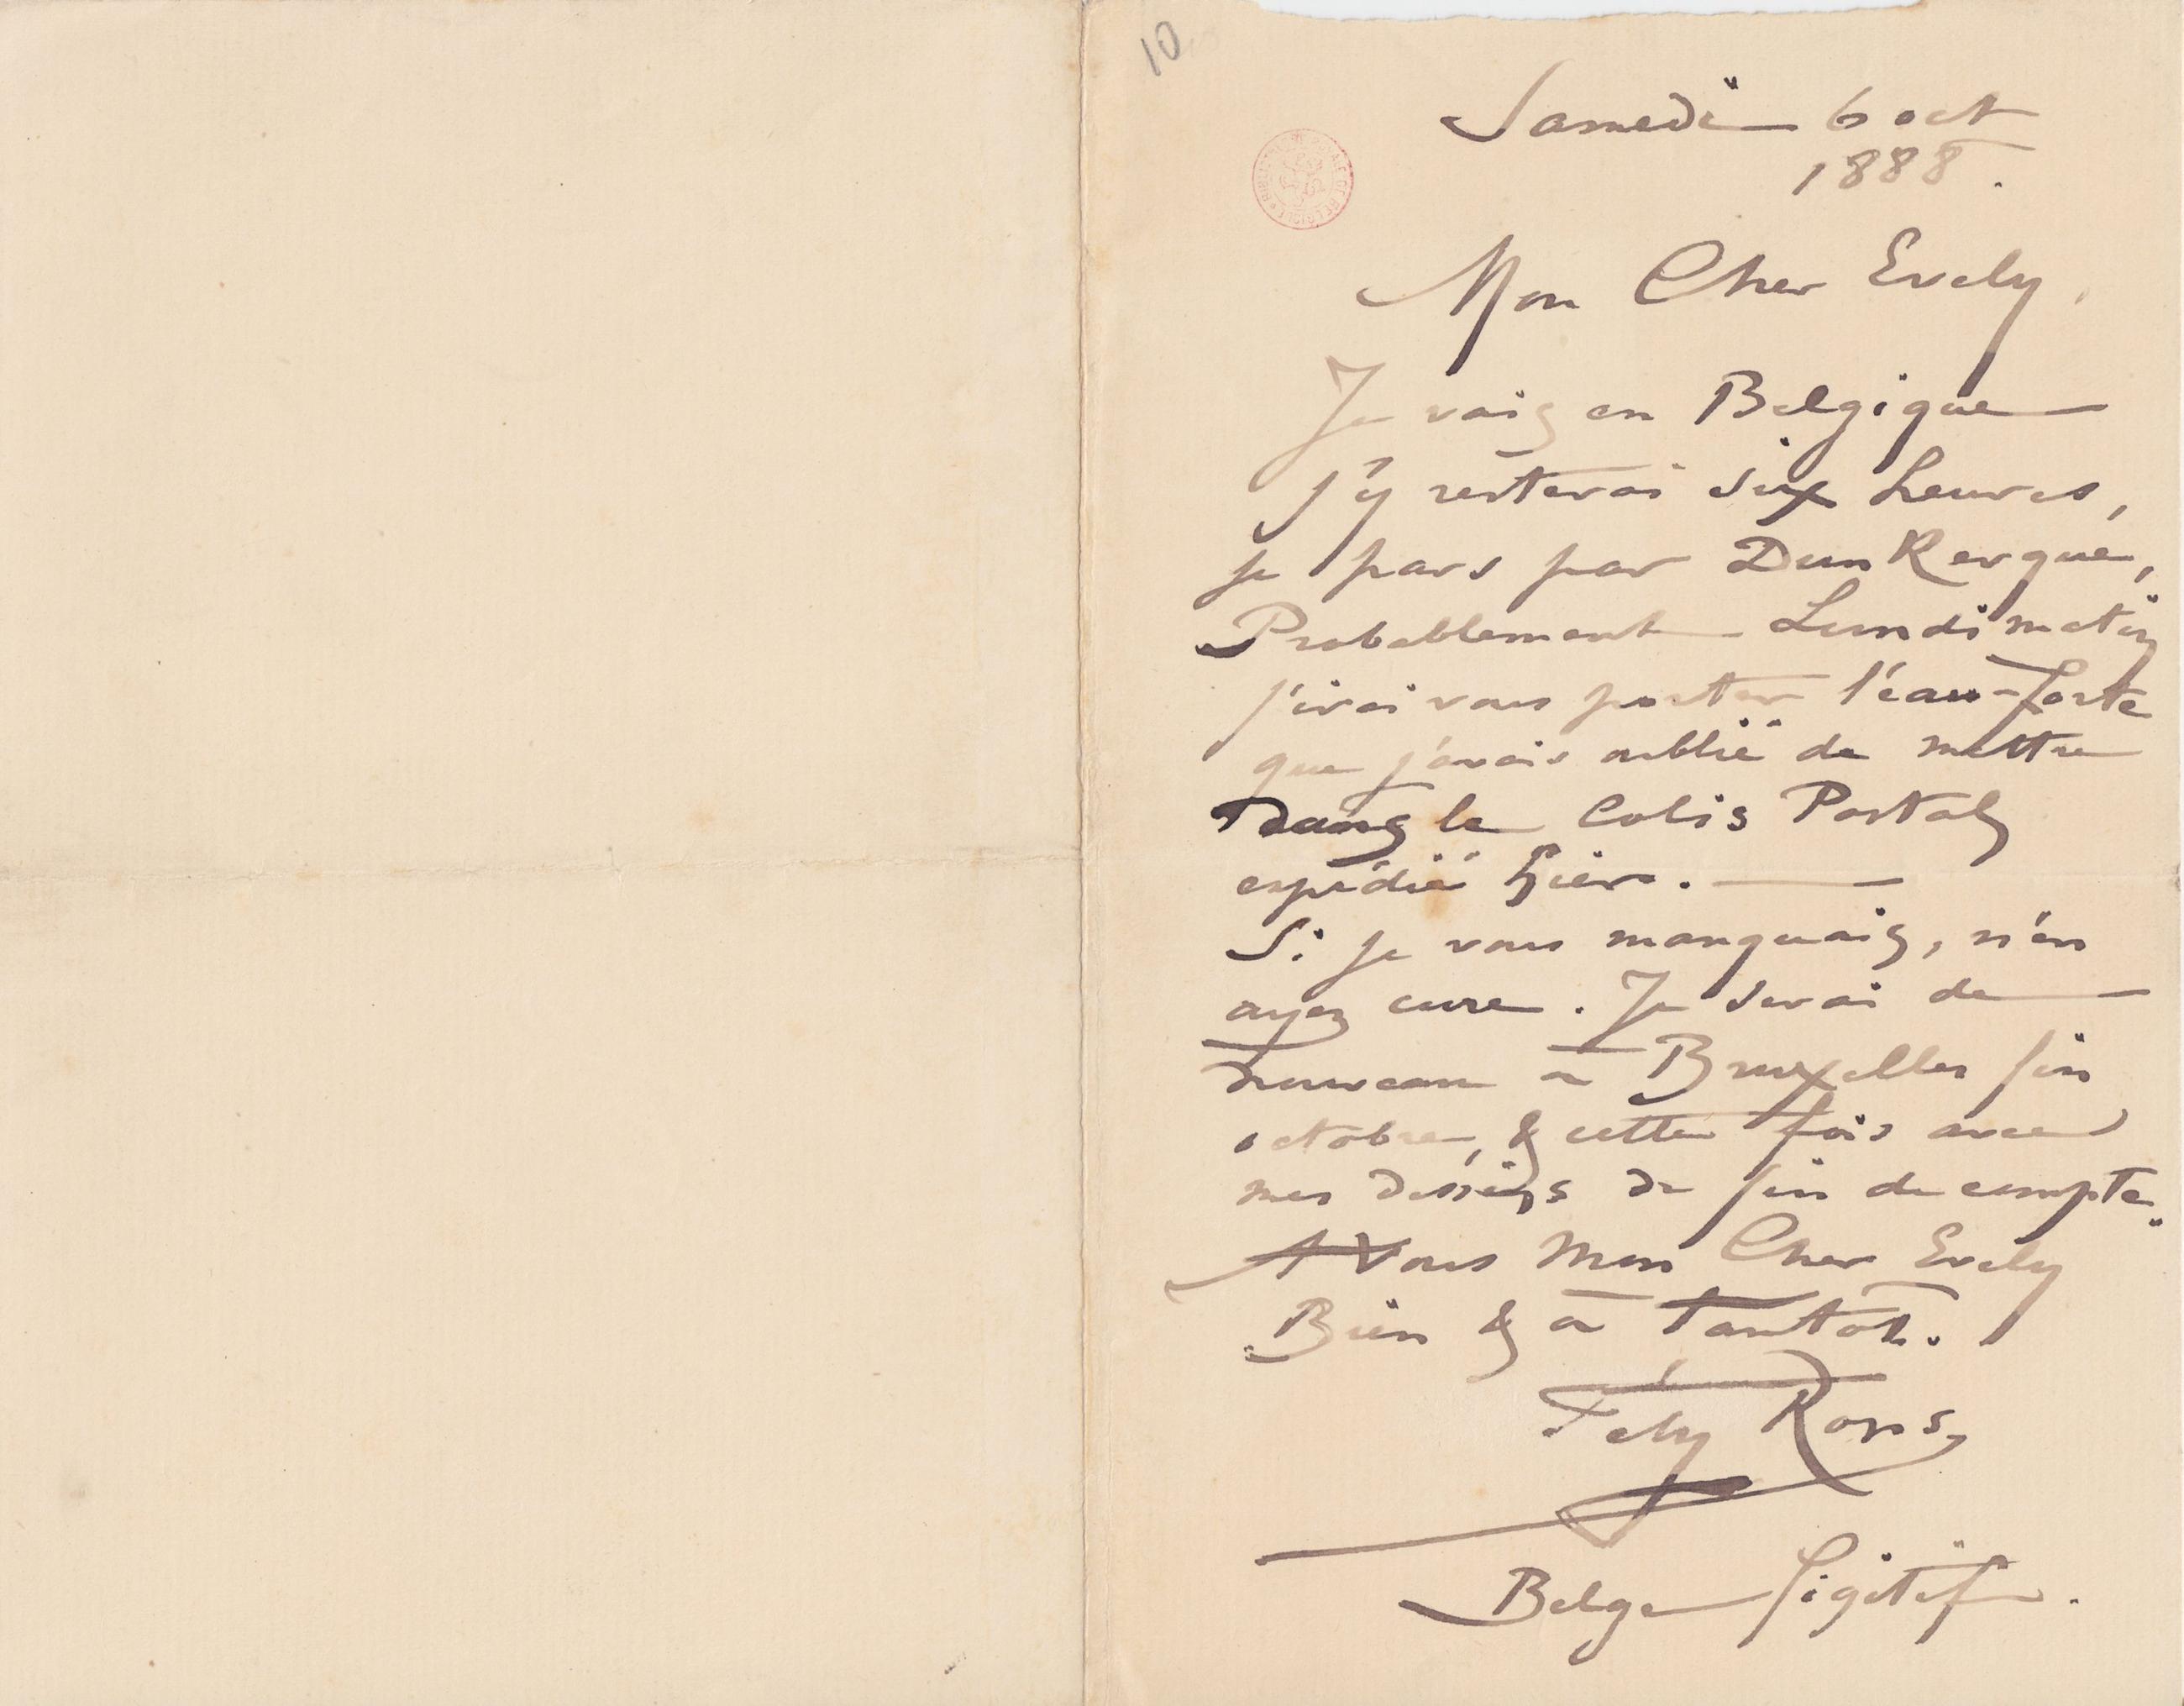 10
Samedi 6 oct
1888.
Mon Cher Evely,
Je vais en Belgique
j'y resterai six heures,
je pars par DunKerque,
Probablement Lundi matin
j'irai vous porter l'eau-forte
que j'avais oublié de mettre
Dans le Colis Postal
expédié hier. —
Si je vous manquais, n'en
ayez cure. Je serai de
nouveau à Bruxelles fin
octobre, & cette fois avec
mes dessins de fin de compte.
A Vous Mon Cher Evely
Bien & à Tantôt.
Fély Rops
Belge figitif.
BIBLIOTHÈQUE ROYALE DE BELGIQUE